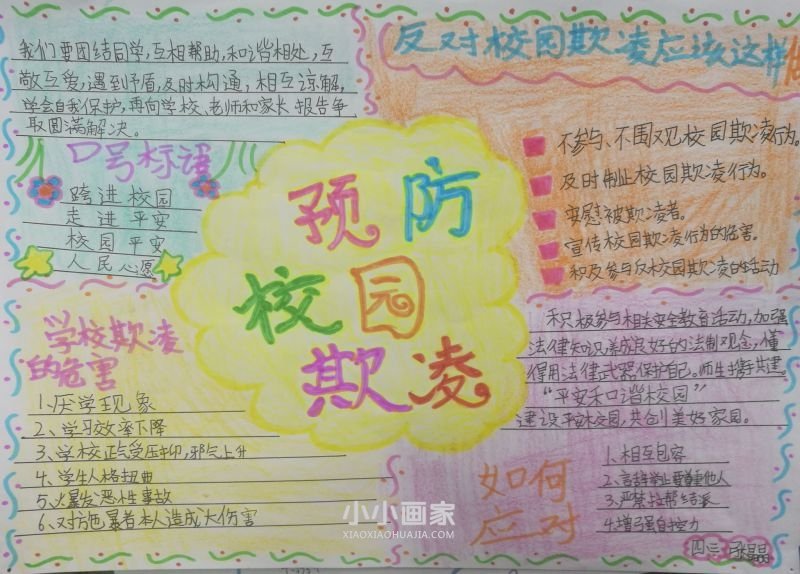 我们要团结同学,互相帮助,和谐相处,互
敬互爱,遇到矛盾,及时构通,相互谅解,
学会自我保护,再向学校、老师和家长报告争
取圆满解决。
口号标语
跨进校园
走进平安
校园平安
人民心愿
反对校园欺凌应该这样做
不参与、不围观校园欺凌行为。
及时制止校园欺凌行为。
安慰被欺凌者。
宣传校园欺凌行为的危害。
积及参与反校园欺凌的活动
预防
校园
欺凌
学校欺凌
的危害
1、厌学现象
2、学习效率下降
3、学校正气受压抑,邪气上升
4、学生人格扭曲
5、火暴发恶性事故
6、对施暴者本人造成大伤害
积极参与相关安全教育活动,加强
法律知识养成良好的法制观念,懂
得用法律武器保护自己。师生携手共建
“平安和谐校园”
建设平安校园,共创美好家园。
如何
应对
1、相互包容
2、言辞举止要尊重他人
3、严禁拉帮结派
4、增强自控力
四三
小小画家
XIAOXIAOHUAJIA.COM